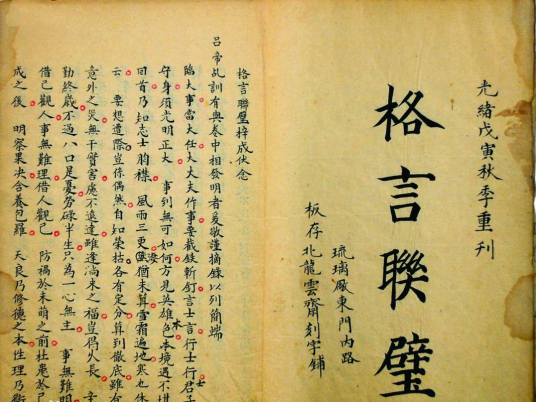 光緒戊寅秋季重刊
格言聯璧
琉璃厰東門内路
板存北龍雲齋刻字鋪
格言聯璧梓成伏念
呂帝乩訓有與卷中相發明者爰敬謹摘錄以列簡端
臨大事當大任大大丈夫作事要截鉄斬釘言士言行士行君子
守身須光明正大 事到無可如何方見英雄本色境遇不堪
回首乃知志士胸襟 風雨三更猶未算雪霜遍地寒也休
云 要想遭際豈係偶然自知榮枯各有定分算到徹底雖有
意外之災無干實害處不遠達雖逢淌來之福豈得久長
勤終歲不過八口足憂勞碌半生只為一心無主 事無難明
借己觀人事無難理借人觀己 防禍於未萌之前杜患於已
成之後 明察果决含養包羅 天良乃修德之本性理乃衛